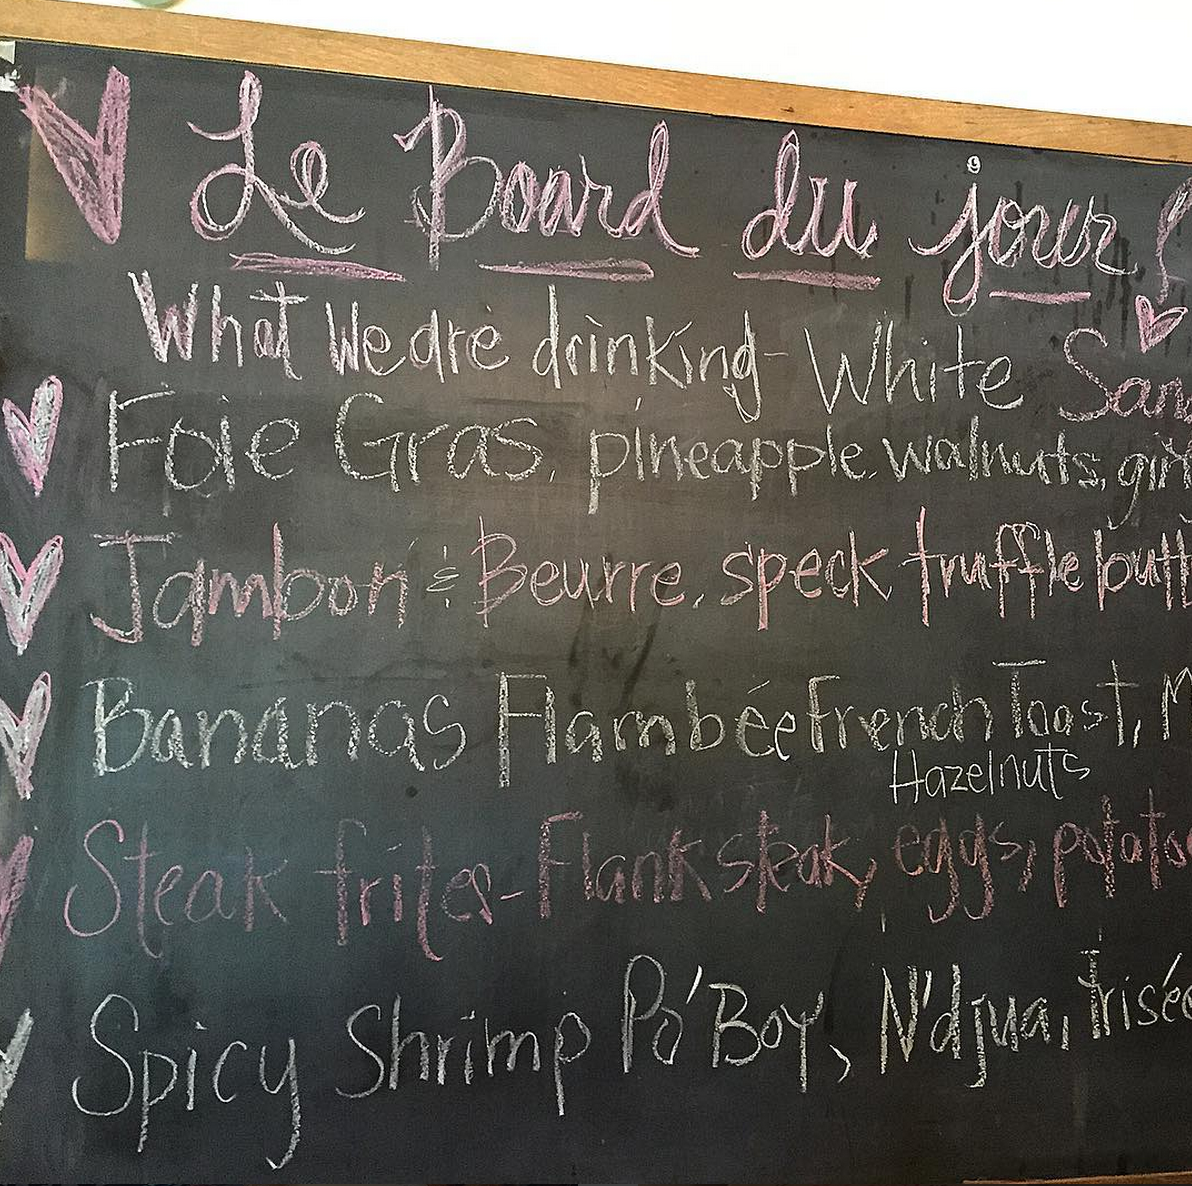 Le Board du jour
What We are drinking - White San
Foie Gras, pineapple, walnuts, 
Jambon & Beurre, speck truffle butt
Bananas Flambée French Toast, M
Hazelnuts
Steak frites - Flank steak, eggs, potatoe
Spicy Shrimp Po'Boy, N'djua, frisée